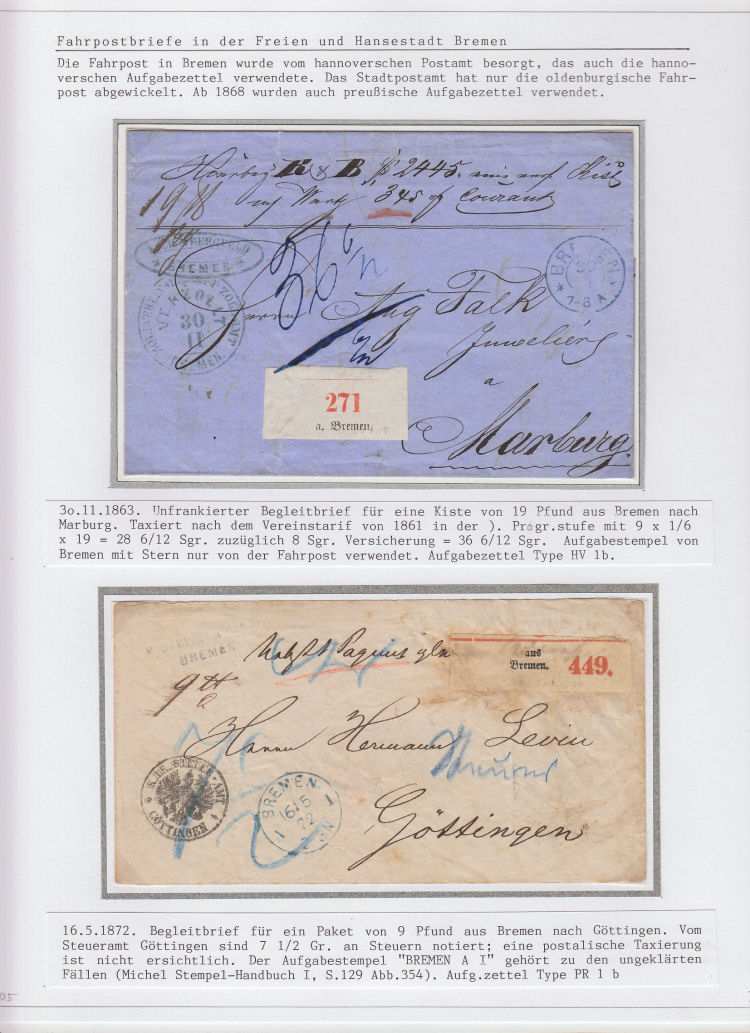 Fahrpostbriefe in der Freien und Hansestadt Bremen
Die Fahrpost in Bremen wurde vom hannoverschen Postamt besorgt, das auch die hanno-
verschen Aufgabezettel verwendete. Das Stadtpostamt hat nur die oldenburgische Fahr-
post abgewickelt. Ab 1868 wurden auch preußische Aufgabezettel verwendet.
B 2445.
345 Courant
BREMEN
BREMEN
7-8 A
30
11
BREMEN.
36 6/12
Aug Falk
Juweliers
a
Marburg.
271
a. Bremen.
3o.11.1863. Unfrankierter Begleitbrief für eine Kiste von 19 Pfund aus Bremen nach
Marburg. Taxiert nach dem Vereinstarif von 1861 in der ). Progr.stufe mit 9 x 1/6
x 19 = 28 6/12 Sgr. zuzüglich 8 Sgr. Versicherung = 36 6/12 Sgr. Aufgabestempel von
Bremen mit Stern nur von der Fahrpost verwendet. Aufgabezettel Type HV 1b.
BREMEN
aus
Bremen. 449.
Herrn Hermann Levin
K.PR.STEUER-AMT
GÖTTINGEN
BREMEN
16 5
72
Göttingen
16.5.1872. Begleitbrief für ein Paket von 9 Pfund aus Bremen nach Göttingen. Vom
Steueramt Göttingen sind 7 1/2 Gr. an Steuern notiert; eine postalische Taxierung
ist nicht ersichtlich. Der Aufgabestempel "BREMEN A I" gehört zu den ungeklärten
Fällen (Michel Stempel-Handbuch I, S.129 Abb.354). Aufg.zettel Type PR 1 b